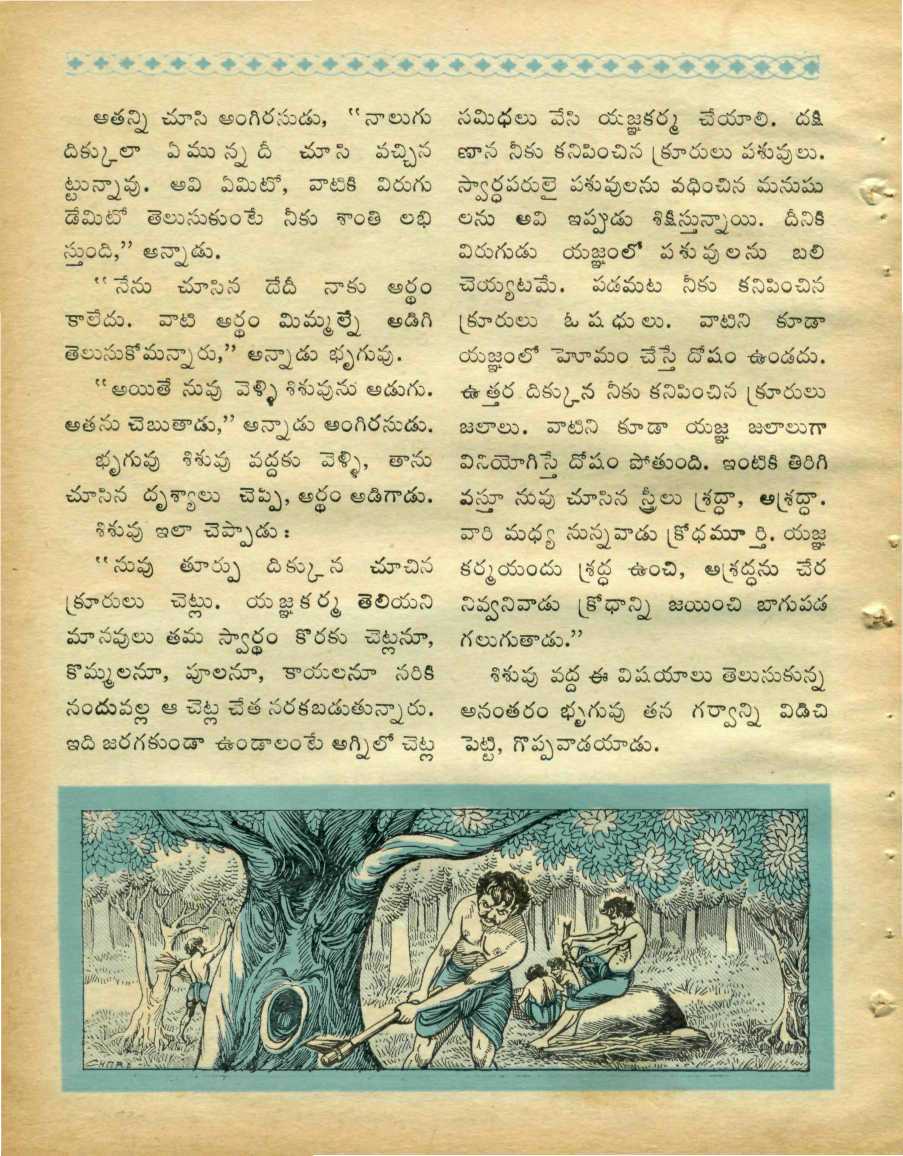 అతన్ని చూసి అంగిరసుడు, "నాలుగు
దిక్కులా ఏమున్నదీ చూసి వచ్చిన
ట్టున్నావు. అవి ఏమిటో, వాటికి విరుగు
డేమిటో తెలుసుకుంటే నీకు శాంతి లభి
స్తుంది," అన్నాడు.
"నేను చూసిన దేదీ నాకు అర్థం
కాలేదు. వాటి అర్థం మిమ్మల్నే అడిగి
తెలుసుకోమన్నారు," అన్నాడు భృగువు.
"అయితే నువు వెళ్ళి శిశువును అడుగు.
అతను చెబుతాడు," అన్నాడు అంగిరసుడు.
భృగువు శిశువు వద్దకు వెళ్ళి, తాను
చూసిన దృశ్యాలు చెప్పి, అర్థం అడిగాడు.
శిశువు ఇలా చెప్పాడు :
"నువు తూర్పు దిక్కున చూచిన
క్రూరులు చెట్లు. యజ్ఞకర్మ తెలియని
మానవులు తమ స్వార్థం కొరకు చెట్లనూ,
కొమ్మలనూ, పూలనూ, కాయలనూ నరికి
నందువల్ల ఆ చెట్ల చేత నరకబడుతున్నారు.
ఇది జరగకుండా ఉండాలంటే అగ్నిలో చెట్ల
సమిధలు వేసి యజ్ఞకర్మ చేయాలి. దక్షి
ణాన నీకు కనిపించిన క్రూరులు పశువులు.
స్వార్థపరులై పశువులను వధించిన మనుషు
లను అవి ఇప్పుడు శిక్షిస్తున్నాయి. దీనికి
విరుగుడు యజ్ఞంలో పశువులను బలి
చెయ్యటమే. పడమట నీకు కనిపించిన
క్రూరులు ఓషధులు. వాటిని కూడా
యజ్ఞంలో హెూమం చేస్తే దోషం ఉండదు.
ఉత్తర దిక్కున నీకు కనిపించిన క్రూరులు
జలాలు. వాటిని కూడా యజ్ఞ జలాలుగా
వినియోగిస్తే దోషం పోతుంది. ఇంటికి తిరిగి
వస్తూ నువు చూసిన స్త్రీలు శ్రద్ధా, అశ్రద్ధా.
వారి మధ్య నున్నవాడు క్రోధమూర్తి. యజ్ఞ
కర్మయందు శ్రద్ధ ఉంచి, అశ్రద్ధను చేర
నివ్వనివాడు క్రోధాన్ని జయించి బాగుపడ
గలుగుతాడు."
శిశువు వద్ద ఈ విషయాలు తెలుసుకున్న
అనంతరం భృగువు తన గర్వాన్ని విడిచి
పెట్టి, గొప్పవాడయాడు.